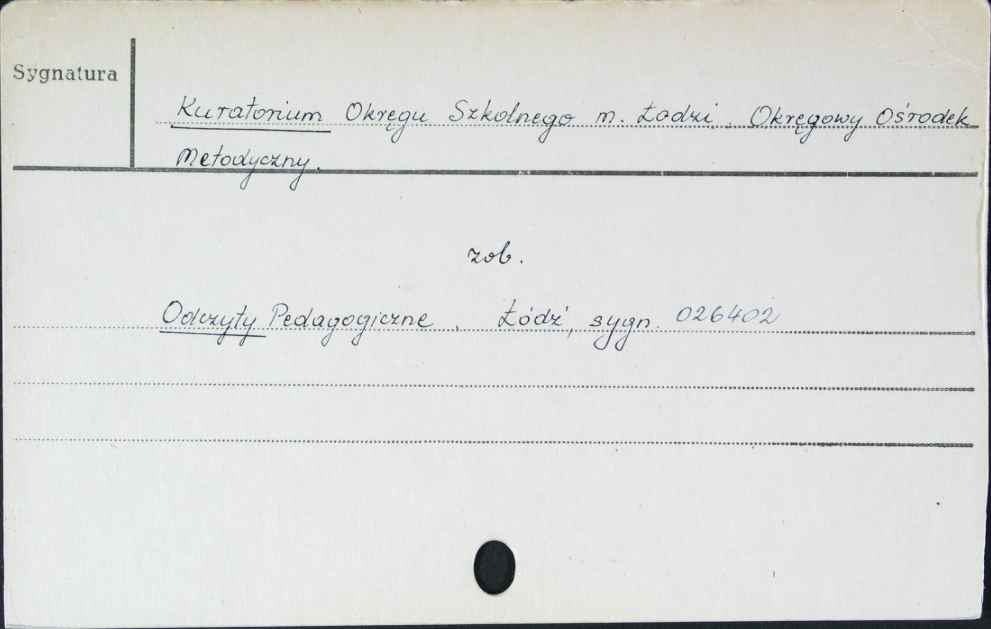 Sygnatura
Kuratorium Okręgu Szkolnego m. Łodzi. Okręgowy Ośrodek
Metodyczny.
zob.
Odczyty Pedagogiczne. Łódź, sygn. 026402